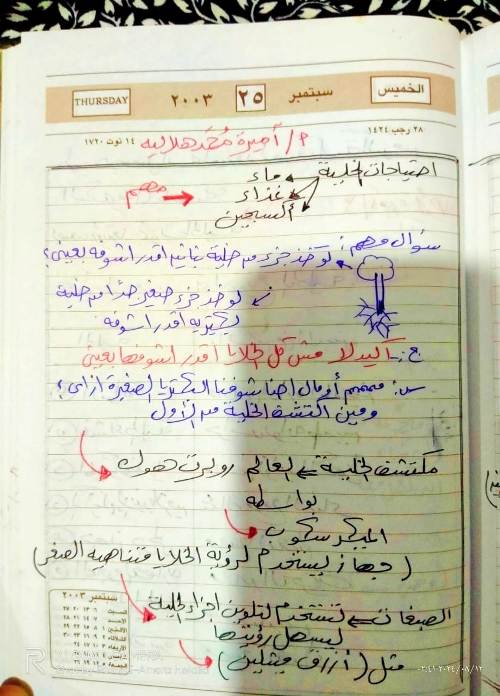 الخميس
سبتمبر ٢٥ ٢٠٠٣
THURSDAY
٢٨ رجب ١٤٢٤
١٤ توت ١٧٢٠
م/ أميرة محمد هلاليه
احتياجات الخلية ماء
غذاء ← مهم
أكسجين
سؤال مهم: لو خذ جزء من خلية نباتيه أقدر اشوفه بعيني؟
لو خذ جزء صغير جدا من خلية
بكتيريه أقدر اشوفه
ج: أكيد لا مش كل الخلايا أقدر اشوفها بعيني
س: ممممم أومال احنا شوفنا البكتريا الصغيرة ازاى؟
ومين اكتشف الخلية من الأول
مكتشف الخلية ⇐ العالم روبرت هوك
بواسطه
الميكروسكوب
(جهاز يستخدم لرؤية الخلايا متناهيه الصغر)
الصبغات ⇐ تستخدم لتلوين اجزاء الخلية
ليسهل رؤيتها
مثل (أزرق ميثلين)
سبتمبر ٢٠٠٣
السبت ٦ ١٣ ٢٠ ٢٧
الأحد ٧ ١٤ ٢١ ٢٨
الاثنين ١ ٨ ١٥ ٢٢ ٢٩
الثلاثاء ٢ ٩ ١٦ ٢٣ ٣٠
الأربعاء ٣ ١٠ ١٧ ٢٤
الخميس ٤ ١١ ١٨ ٢٥
الجمعة ٥ ١٢ ١٩ ٢٦